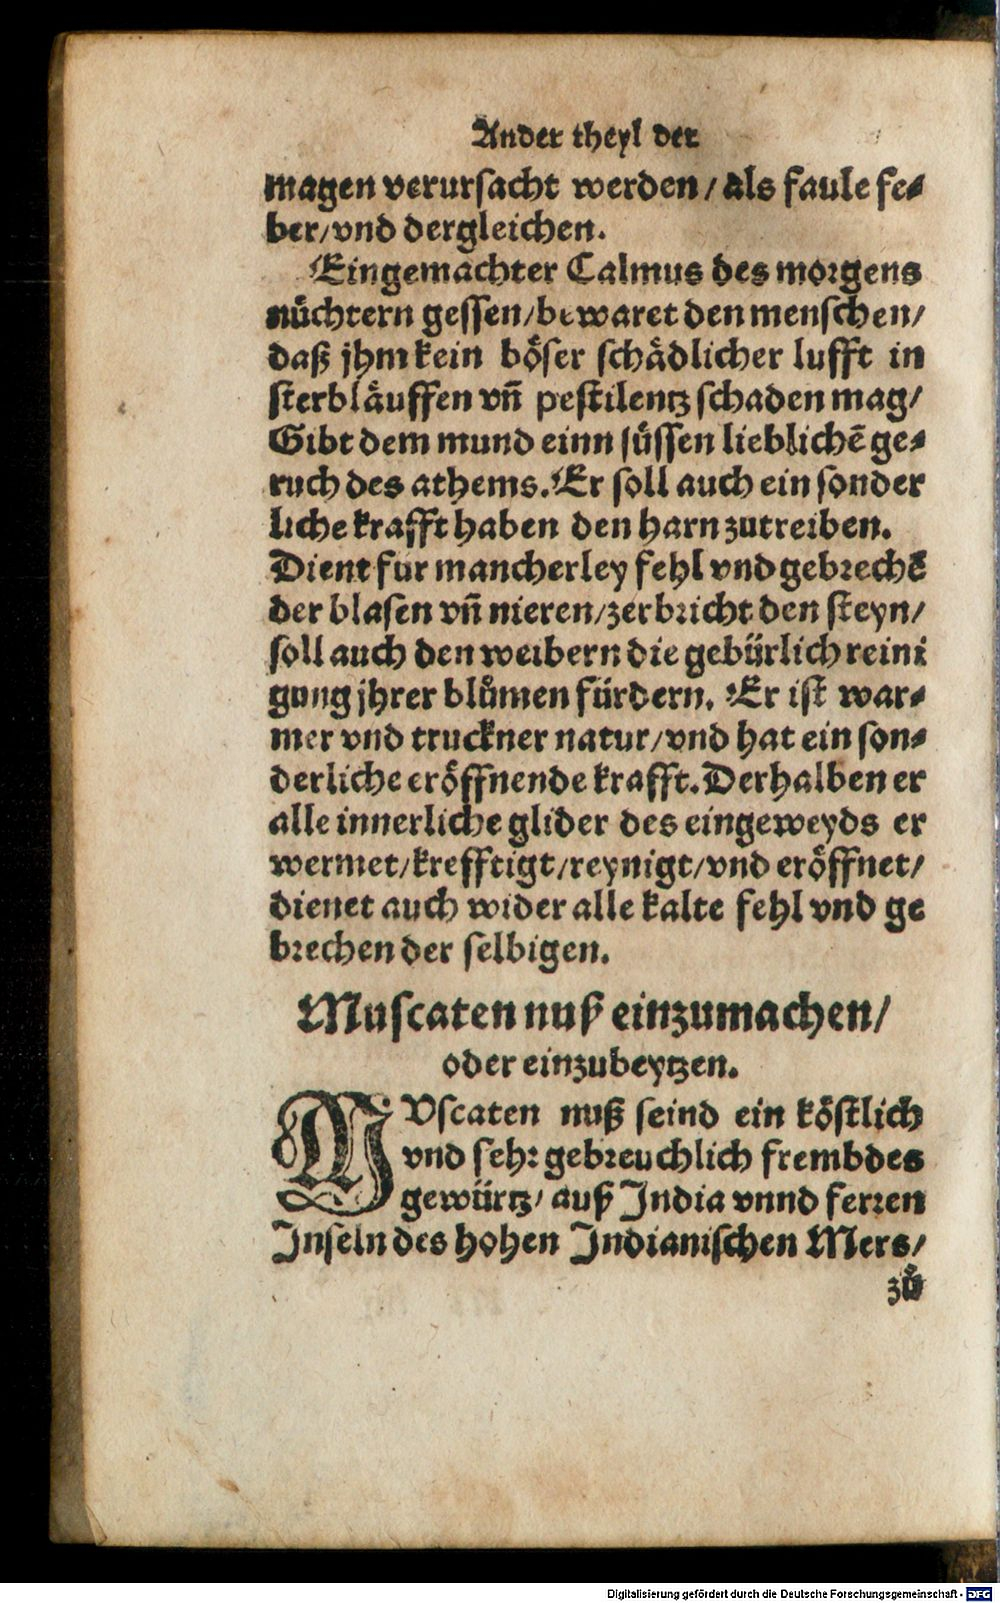 Ander theyl der
magen verursacht werden / als faule fe⸗
ber / vnd dergleichen.
Eingemachter Calmus des morgens
nüchtern gessen / bewaret den menschen /
daß jhm kein böser schädlicher lufft in
sterbläuffen vñ pestilentz schaden mag /
Gibt dem mund einn süssen lieblichẽ ge⸗
ruch des athems. Er soll auch ein sonder
liche krafft haben den harn zutreiben.
Dient fur mancherley fehl vnd gebrechẽ
der blasen vñ nieren / zerbricht den steyn /
soll auch den weibern die gebürlich reini
gung jhrer blůmen fürdern. Er ist war⸗
mer vnd truckner natur / vnd hat ein son⸗
derliche eröffnende krafft. Derhalben er
alle innerliche glider des eingeweyds er
wermet / krefftigt / reynigt / vnd eröffnet /
dienet auch wider alle kalte fehl vnd ge
brechen der selbigen.
Muscaten nuß einzumachen /
oder einzubeytzen.
MVscaten nuß seind ein köstlich
vnd sehr gebreuchlich frembdes
gewürtz / auß India vnnd ferren
Inseln des hohen Indianischen Mers /
zů
Digitalisierung gefördert durch die Deutsche Forschungsgemeinschaft - DFG